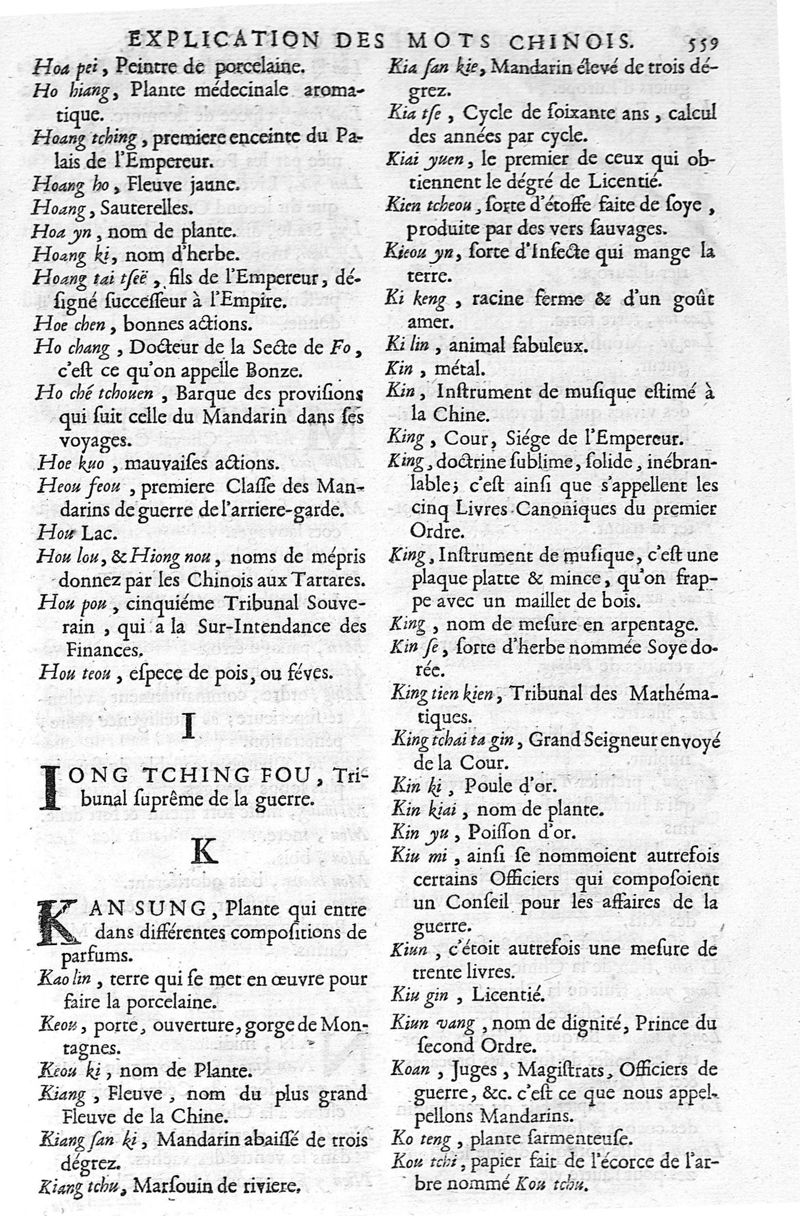 EXPLICATION DES MOTS CHINOIS. 559
Hoa pei, Peintre de porcelaine.
Ho hiang, Plante médecinale aroma-
tique.
Hoang tching, premiere enceinte du Pa-
lais de l'Empereur.
Hoang ho, Fleuve jaune.
Hoang, Sauterelles.
Hoa yn, nom de plante.
Hoang ki, nom d'herbe.
Hoang tai tſeë, fils de l'Empereur, dé-
ſigné ſucceſſeur à l'Empire.
Hoe chen, bonnes actions.
Ho chang, Docteur de la Secte de Fo,
c'eſt ce qu'on appelle Bonze.
Ho ché tchouen, Barque des proviſions
qui ſuit celle du Mandarin dans ſes
voyages.
Hoe kuo, mauvaiſes actions.
Heou ſeou, premiere Claſſe des Man-
darins de guerre de l'arriere-garde.
Hou Lac.
Hou lou, & Hiong nou, noms de mépris
donnez par les Chinois aux Tartares.
Hou pou, cinquiéme Tribunal Souve-
rain, qui a la Sur-Intendance des
Finances.
Hou teou, eſpece de pois, ou féves.
I
IONG TCHING FOU, Tri-
bunal ſuprême de la guerre.
K
KAN SUNG, Plante qui entre
dans différentes compoſitions de
parfums.
Kao lin, terre qui ſe met en œuvre pour
faire la porcelaine.
Keou, porte, ouverture, gorge de Mon-
tagnes.
Keou ki, nom de Plante.
Kiang, Fleuve, nom du plus grand
Fleuve de la Chine.
Kiang ſan ki, Mandarin abaiſſé de trois
dégrez.
Kiang tchu, Marſouin de riviere.
Kia ſan kie, Mandarin élevé de trois dé-
grez.
Kia tſe, Cycle de ſoixante ans, calcul
des années par cycle.
Kiai yuen, le premier de ceux qui ob-
tiennent le dégré de Licentié.
Kien tcheou, ſorte d'étoffe faite de ſoye,
produite par des vers ſauvages.
Kieou yn, ſorte d'Inſecte qui mange la
terre.
Ki keng, racine ferme & d'un goût
amer.
Ki lin, animal fabuleux.
Kin, métal.
Kin, Inſtrument de muſique eſtimé à
la Chine.
King, Cour, Siége de l'Empereur.
King, doctrine ſublime, ſolide, inébran-
lable; c'eſt ainſi que s'appellent les
cinq Livres Canoniques du premier
Ordre.
King, Inſtrument de muſique, c'eſt une
plaque platte & mince, qu'on frap-
pe avec un maillet de bois.
King, nom de meſure en arpentage.
Kin ſe, ſorte d'herbe nommée Soye do-
rée.
King tien kien, Tribunal des Mathéma-
tiques.
King tchai ta gin, Grand Seigneur envoyé
de la Cour.
Kin ki, Poule d'or.
Kin kiai, nom de plante.
Kin yu, Poiſſon d'or.
Kiu mi, ainſi ſe nommoient autrefois
certains Officiers qui compoſoient
un Conſeil pour les affaires de la
guerre.
Kiun, c'étoit autrefois une meſure de
trente livres.
Kiu gin, Licentié.
Kiun vang, nom de dignité, Prince du
ſecond Ordre.
Koan, Juges, Magiſtrats, Officiers de
guerre, &c. c'eſt ce que nous appel-
pellons Mandarins.
Ko teng, plante ſarmenteuſe.
Kou tchi, papier fait de l'écorce de l'ar-
bre nommé Kou tchu.